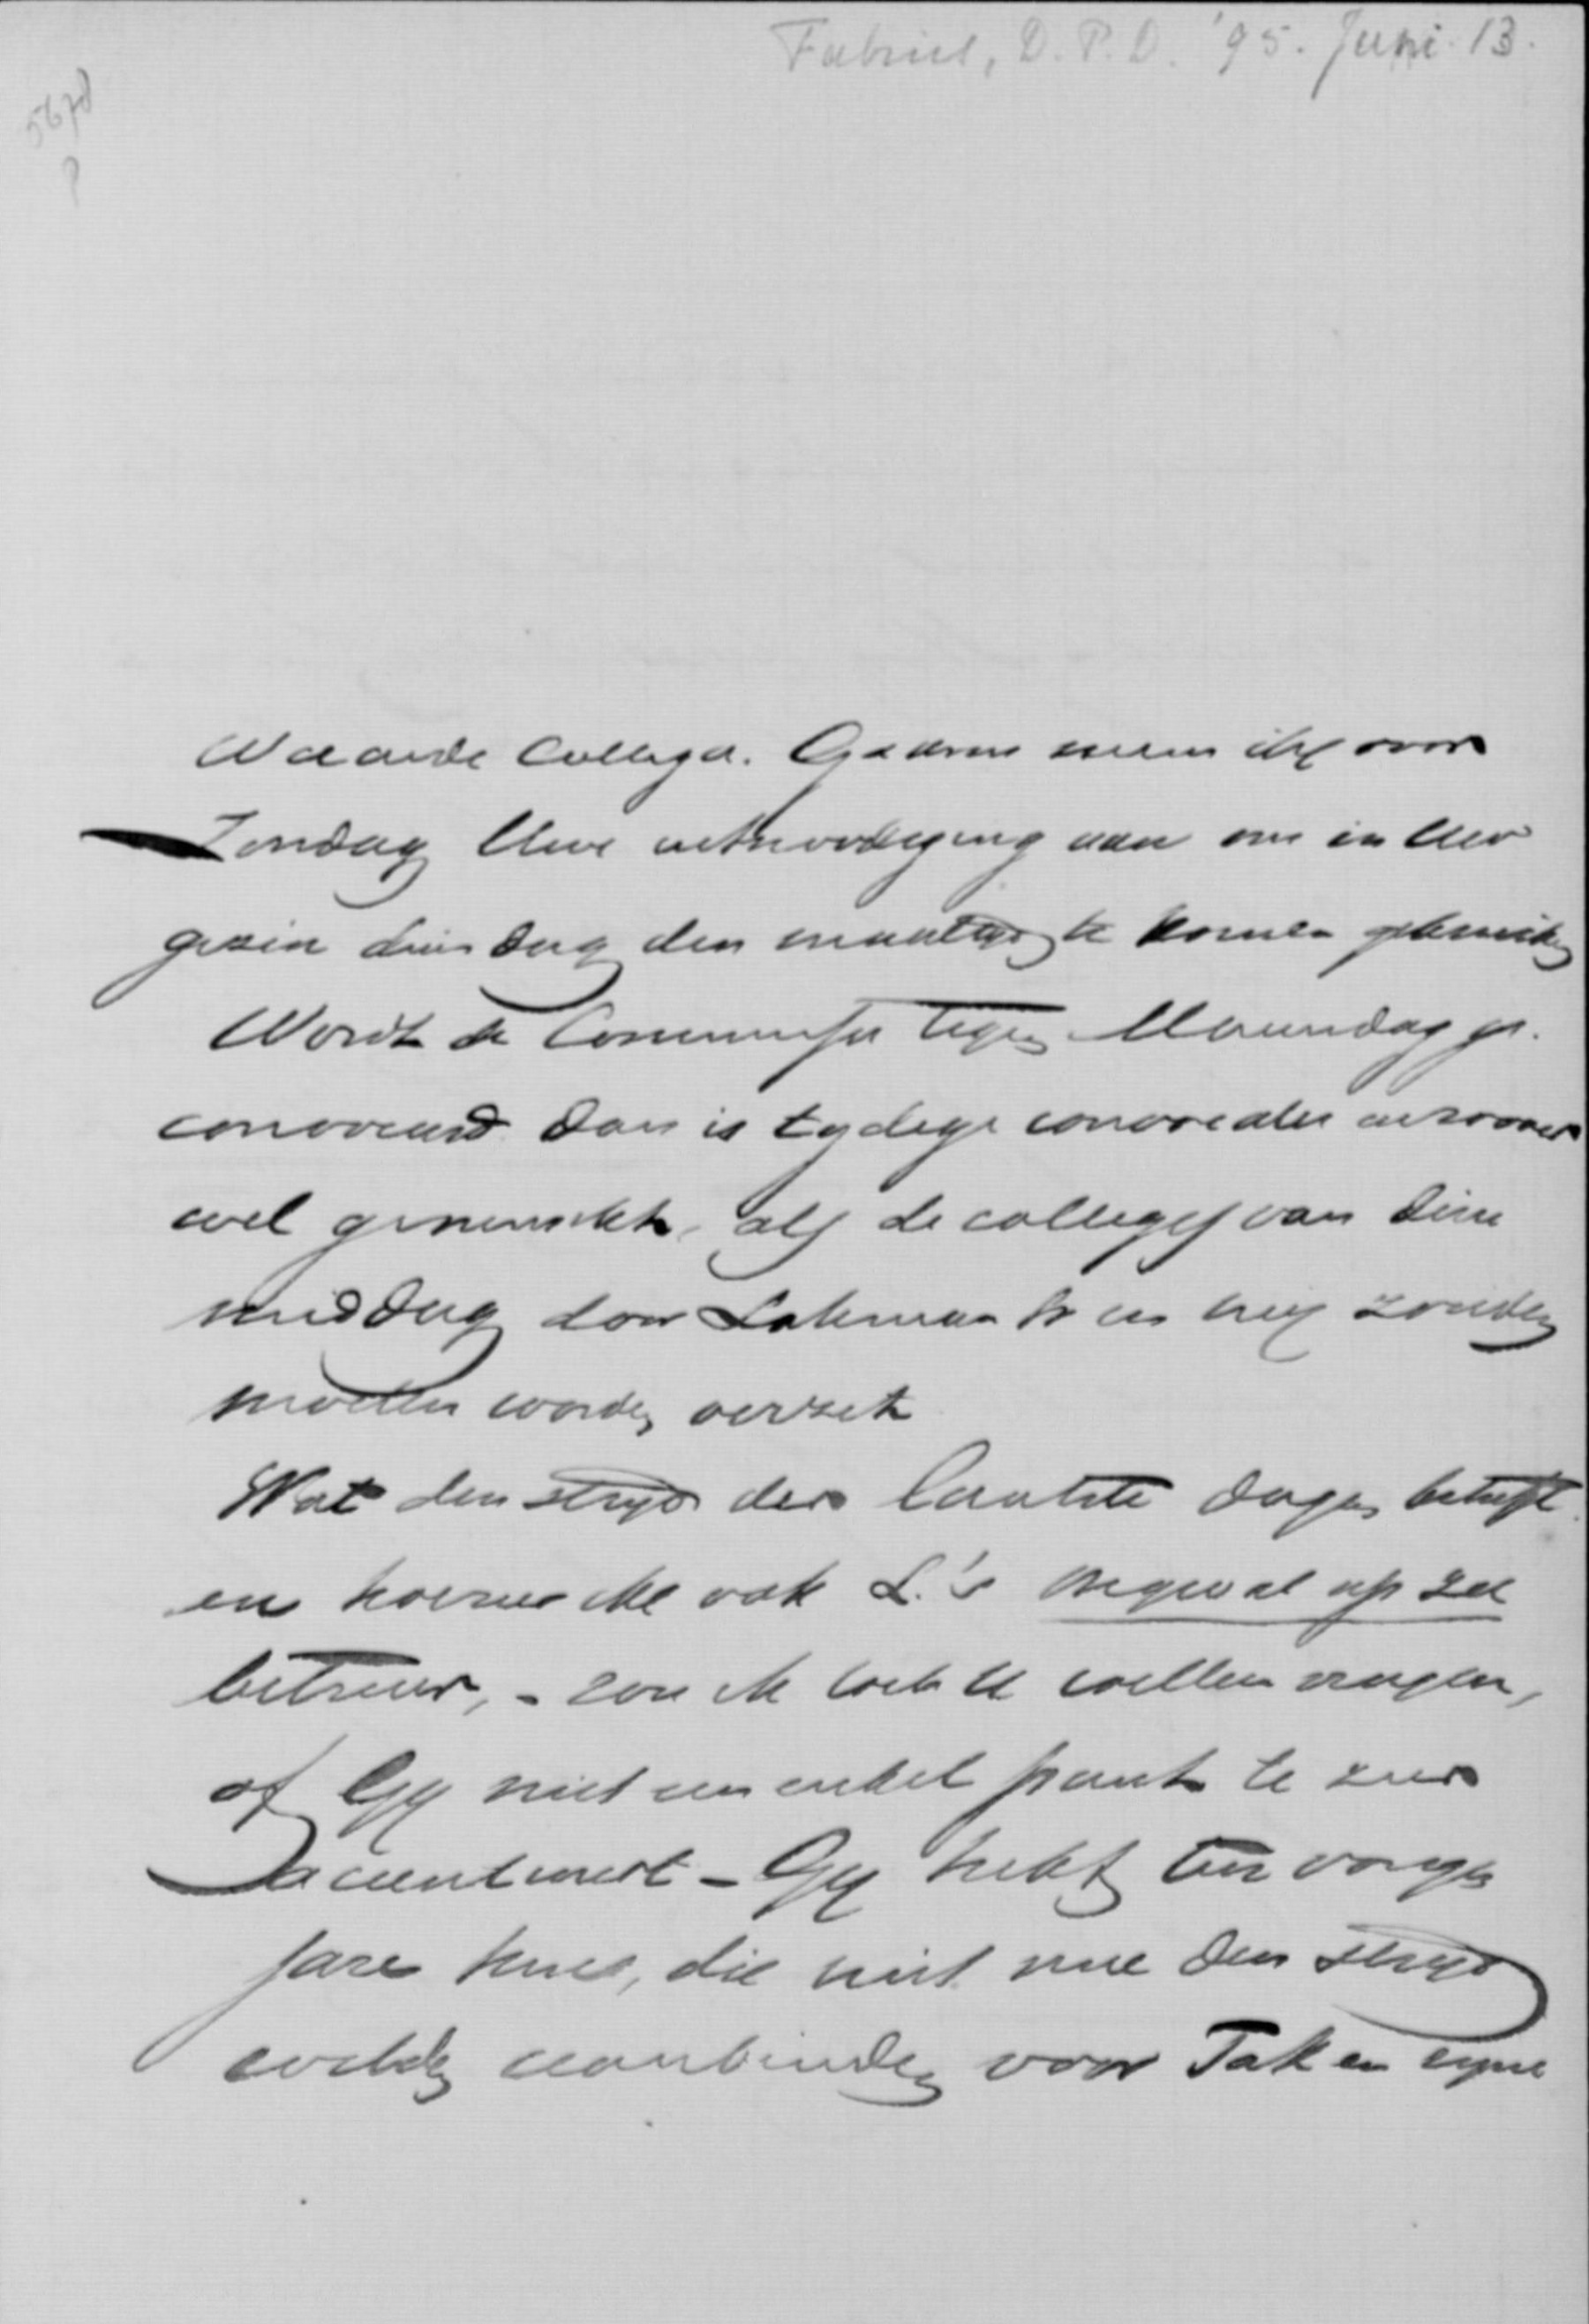 Fabius, D.P.D. '95. Juni. 13.
5678
?
Waarde Collega. Gaarne neem ik voor
Zondag Uwe uitnoodiging aan om in Uw
gezin dien dag den maaltijd te komen gebruiken
Wordt de Commissie tegen Maandag ge-
convoceerd dan is tydige convocatie
wel gewenscht, als de colleges van dien
middag door Lohman & en mij zouden
moeten worden verzet
Wat den strijd der laatste dagen betreft
en hoezeer ik ook L.'s op zee
betreur, - zou ik toch U willen vragen,
of Gij niet een enkel punt te zeer
accentueert - Gij hebt ten vorigen
jare hen, die niet mee den strijd
wilden aanbinden voor Tak en zijne